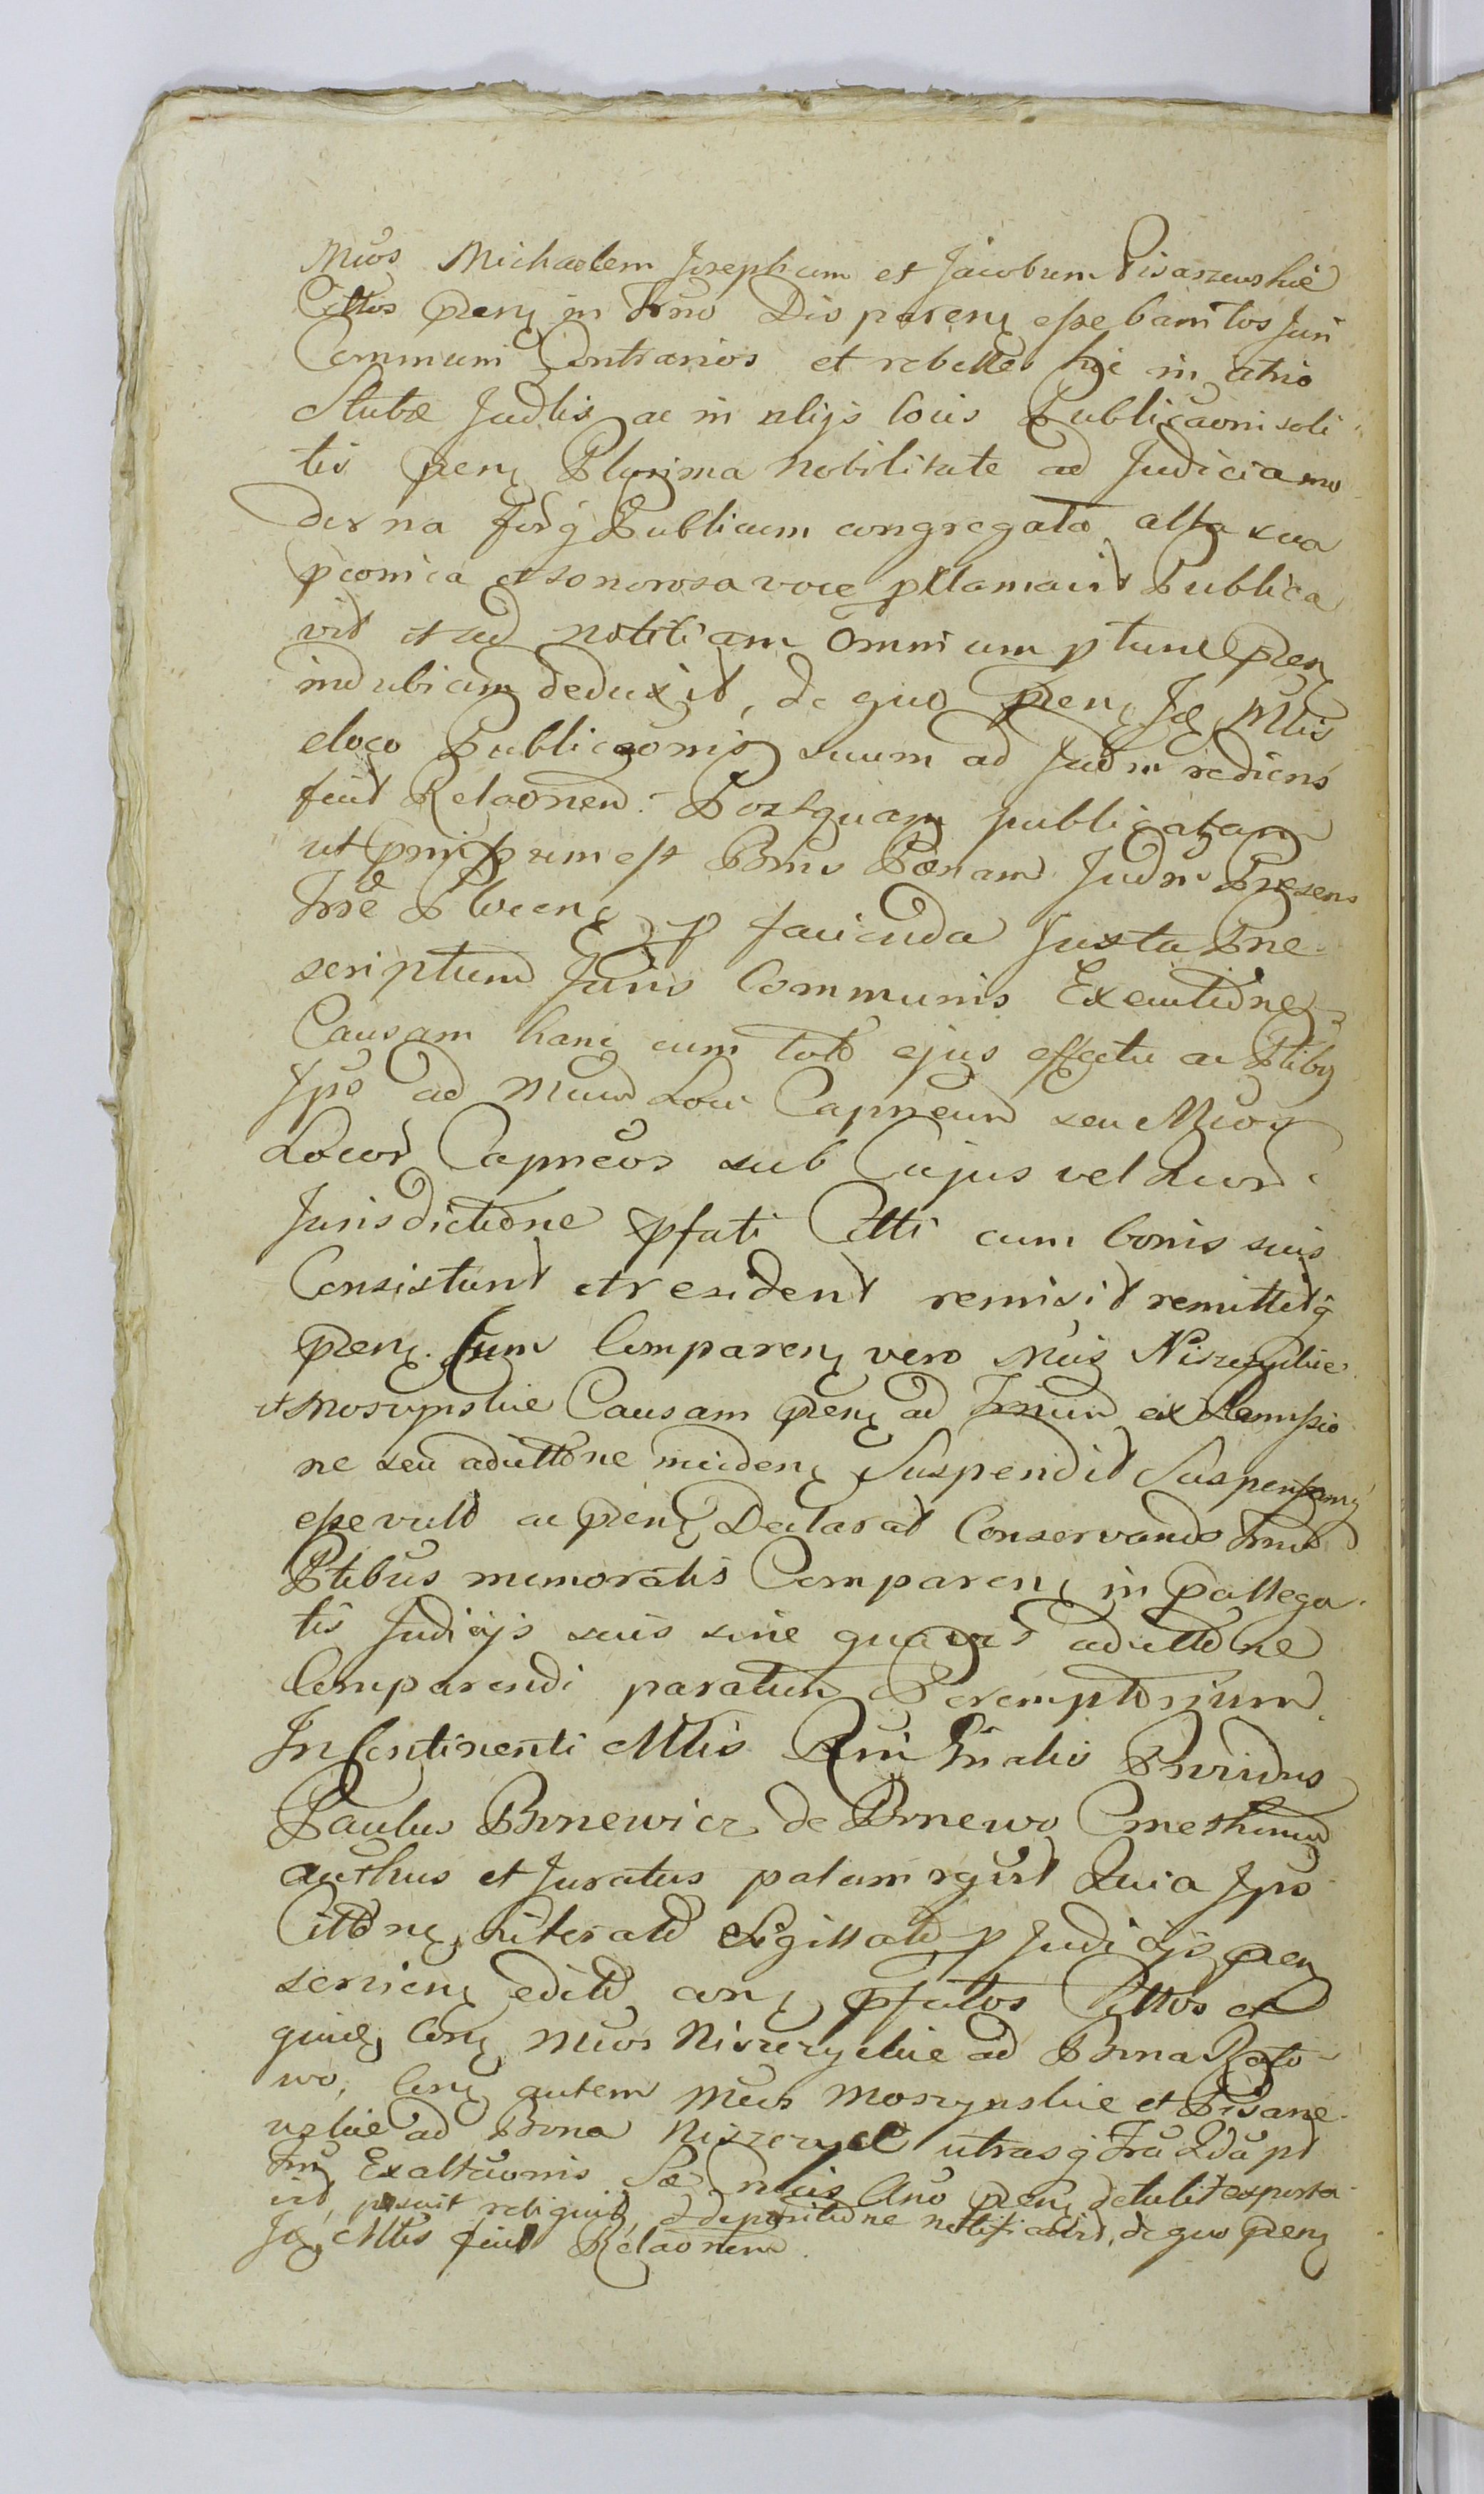 Mŭos Michaelem Josephum et Jacobum Pisarzewskie
Cittos pnẽnt in Trno Disparent esse banitos Juri
Communi Contrarios et rebelles hic in atrio
Stubæ Judlis ac in alijs locis Publicaoni soli
tis pnt Plurima Nobilitate ad Judicia mo
derna forq̃ Publicum congregata alta sua
pconica et sonorosa voce pclamavit Publica
vit et ad notitiam omnium p tunc pnt
indubiam deduxit, de quo pnẽnt Jq Mlis
e loco Publicaonis suum ad Judm rediens
fecit Relaonem. Postquam publicatam
ut pmissum est Bnis Pænam Judm Præsens
Trre Plocen p facienda Juxta Præ
scriptum Juris Communis Executione
Causam hanc cum toto ejus effectu ac Ptibq
Ipo ad Mcum Loci Capneum seu Mcos
Locor Capneos sub Cujus vel Quor
Jurisdictione pfati Citti cum bonis suis
Consistunt et resident remisit remittitq̃
pnẽnt. Cum Comparent vero Mcis Niszczyckie
et Moszynskie Causam pnẽnt ad Trnum ex Remissio
ne seu adcittõne inciden Suspendit Suspensamq̃
esse vult ac pnẽnt Declarat Conservando Trnum
Ptibus memoratis Comparent in pallega
tis Judicijs suis sine quavis adcittõne
Comparendi paratum Peremptorium.
In Continenti Mlis Rni Gnalis Providus
Paulus Bronewicz de Bronewo Cmethonum
authus et Juratus palam rgvit Quia Ipo
Cittõne Literato Sigillato p Judicijs pnt
servien edito con pfatos Cittos et
quid Con Mcos Niszczyckie ad Bona Rzato
wo, Con autem Mcos Moszynskie et Pisarze
wskie ad Bona Niszczyce utrasq̃
Exaltaonis Sæ Crucis Ano pnt detulit exporta
vit, posuit reliquit, de depositione notificavit, de quo pnẽnt
Jq Mlis fecit Relaonem.